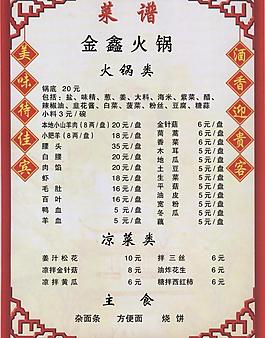 菜谱
金鑫火锅
美味待佳宾
酒香迎贵客
火锅类
锅底 20元
包括:盐、味精、葱、姜、大料、海米、紫菜、醋、
辣椒油、韭花酱、白菜、菠菜、粉丝、豆腐、糖蒜
小料3元/碗
本地小山羊肉(8两/盘) 20元/盘
小肥羊(8两/盘) 18元/盘
腰头 35元/盘
白腰 20元/盘
肉馅 20元/盘
虾 20元/盘
毛肚 16元/盘
百叶 16元/盘
鸭血 5元/盘
羊血 5元/盘
金针菇 6元/盘
茼蒿 6元/盘
香菜 6元/盘
木耳 6元/盘
地瓜 5元/盘
土豆 5元/盘
生菜 5元/盘
平菇 5元/盘
油皮 5元/盘
宽粉 5元/盘
冬瓜 5元/盘
藕 5元/盘
凉菜类
姜汁松花 10元/盘
凉拌金针菇 8元/盘
凉拌黄瓜 6元/盘
拌三丝 6元/盘
油炸花生 6元/盘
糖拌西红柿 6元/盘
主食
杂面条 方便面 烧饼